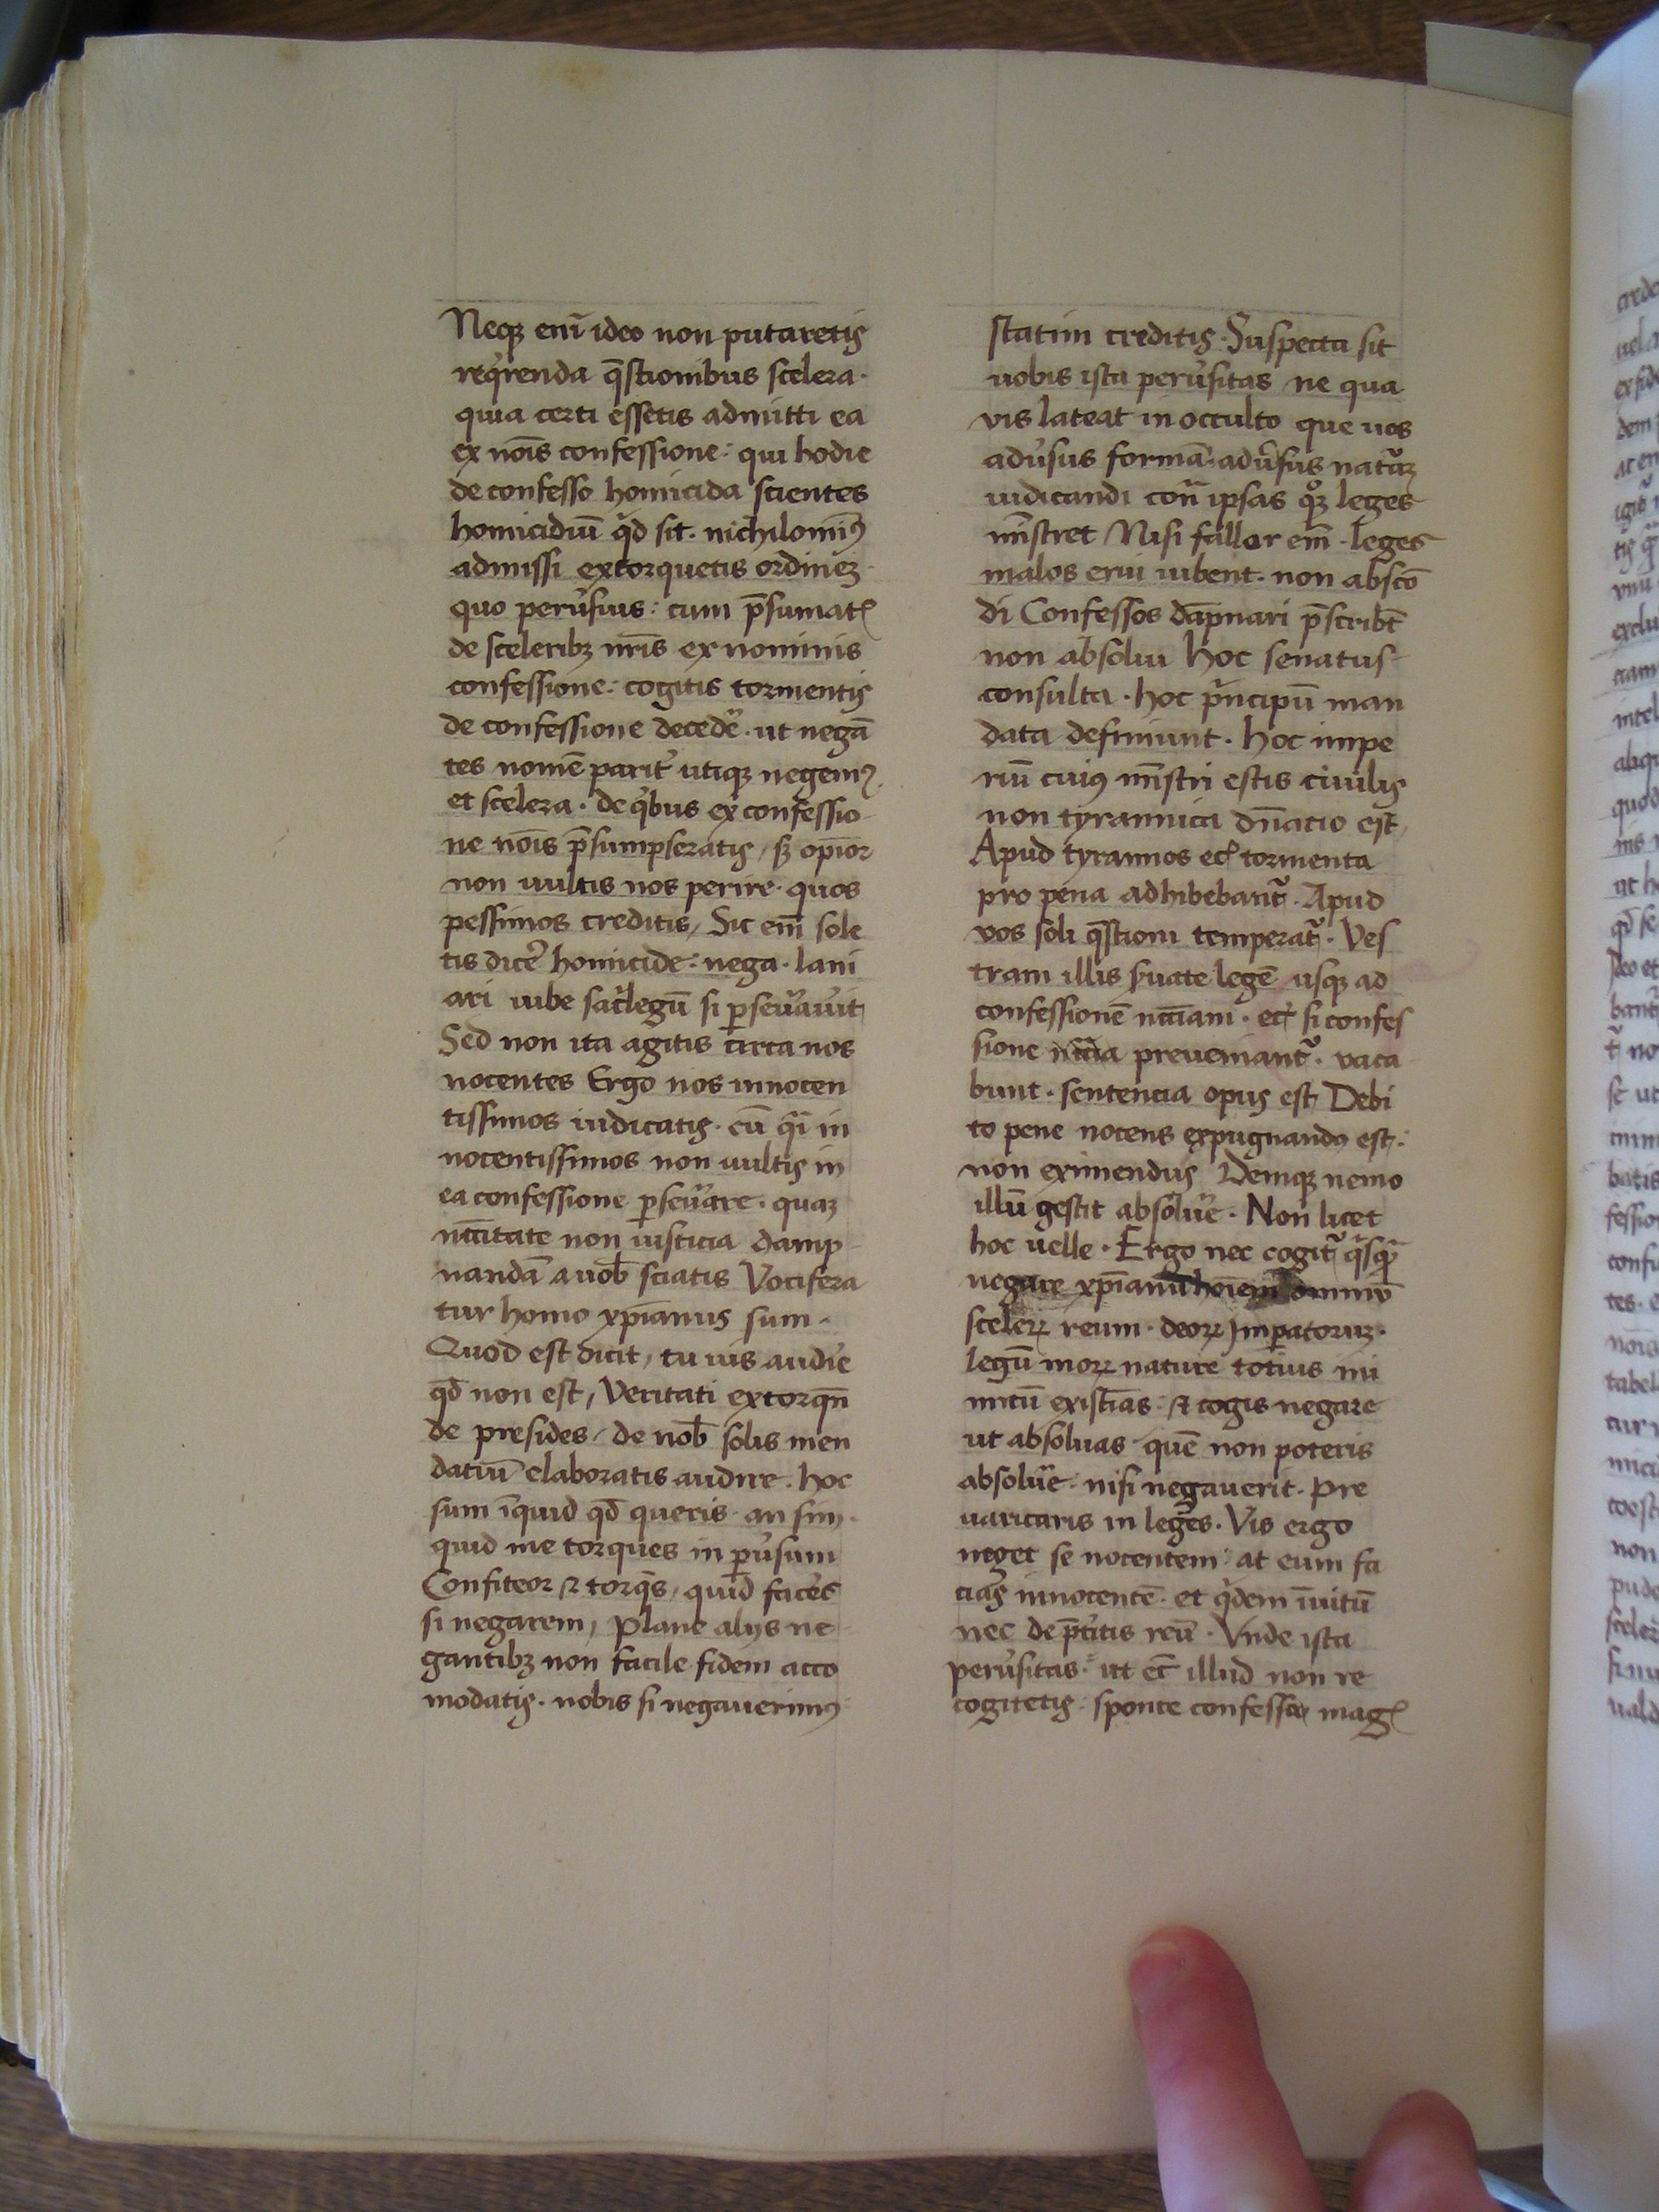 Neqꝫ eni᷒ ideo non putaretis
reqͥrenda q̄stionibus scelera·
quia certi essetis admitti ea
ex nōis confessione· qui hodie
de confesso homicida scientes
homicidiū qͥd sit· nichilomīꝰ
admissi extorquetis ordineꝫ·
quo peruͥsius: cum p̄sumatꝭ
de sceleribꝫ nr̄is ex nominis
confessione: cogitis tormentis
de confessione decedẽ· ut negā
tes nomē parit᷒ utiqꝫ negemꝰ
et scelera· de qͥbus ex confessio
ne nōis p̄sumpseratis / sꝫ opīor
non uultis nos perire· quos
pessimos creditis / Sic em̄ sole
tis dicẽ homicide: nega· lani
ari iube sac̃legū si ꝑseũauit
Sed non ita agitis circa nos
nocentes Ergo nos innocen
tissimos iudicatis· cū qͣi in
nocentissimos non uultis in
ea confessione ꝑseũare· quaꝫ
nc̄citate non iusticia damp
nandā a uob̄ sciatis Vocifera
tur homo xp̄ianus sum·
Quod est dicit / tu uis audĩe
qd̄ non est / Veritati extorqn̄
de presides / de nob̄ solis men
daciū elaboratis audire· hoc
sum īquid qd̄ queris an sim·
quid me torques in ꝑuͥsum
Confiteor ⁊ torqs̄ / quid facẽs
si negarem / plane alijs ne
gantibꝫ non facile fidem acco
modatis· nobis si negauerimꝰ
statim creditis· Suspecta sit
uobis ista peruͥsitas ne qua
vis lateat in occulto que uos
aduͥsus formā· aduͥsus natūꝝ
iudicandi cont̄ ipsas qͦꝫ leges
mīstret Nisi fallor em̄· leges
malos erui iubent· non abscō
di Confessos dāpnari p̄scribt̄
non absolui Hoc senatus
consulta· hoc pͥncipū man
data definiunt· Hoc impe
riū cuiꝰ mīstri estis ciuilis
non tyrannica dn̄atio est
Apud tyrannos ec̄ tormenta
pro pena adhibebant᷑· Apud
vos soli q̄stioni temperat᷑· Ves
tram illis s̃uate legē usqꝫ ad
confessionē nc̄ciam· ec̄ si confes
sione nc̄cia preueniant᷑· vaca
bunt· sentencia opus est Debi
to pene nocens expugnandꝰ est·
non eximendus Deniqꝫ nemo
illū gestit absolũe· Non licet
hoc uelle· Ergo nec cogit᷑ qͥsqͣ
negare xp̄ianū hoīem omniū
sceleꝝ reum· deoꝝ Imꝑatoruꝫ·
legū moꝝ nature totius ini
micū existīas: ⁊ cogis negare
ut absoluas quē non poteris
absolũe: nisi negauerit· pre
uaricaris in leges· Vis ergo
neget se nocentem: at eum fa
cias innocentē· et qͥdem īuitū
nec de p̄titis reū· Vnde ista
peruͥsitas· ut ec̄ illud non re
cogitetis: sponte confesso magꝭ